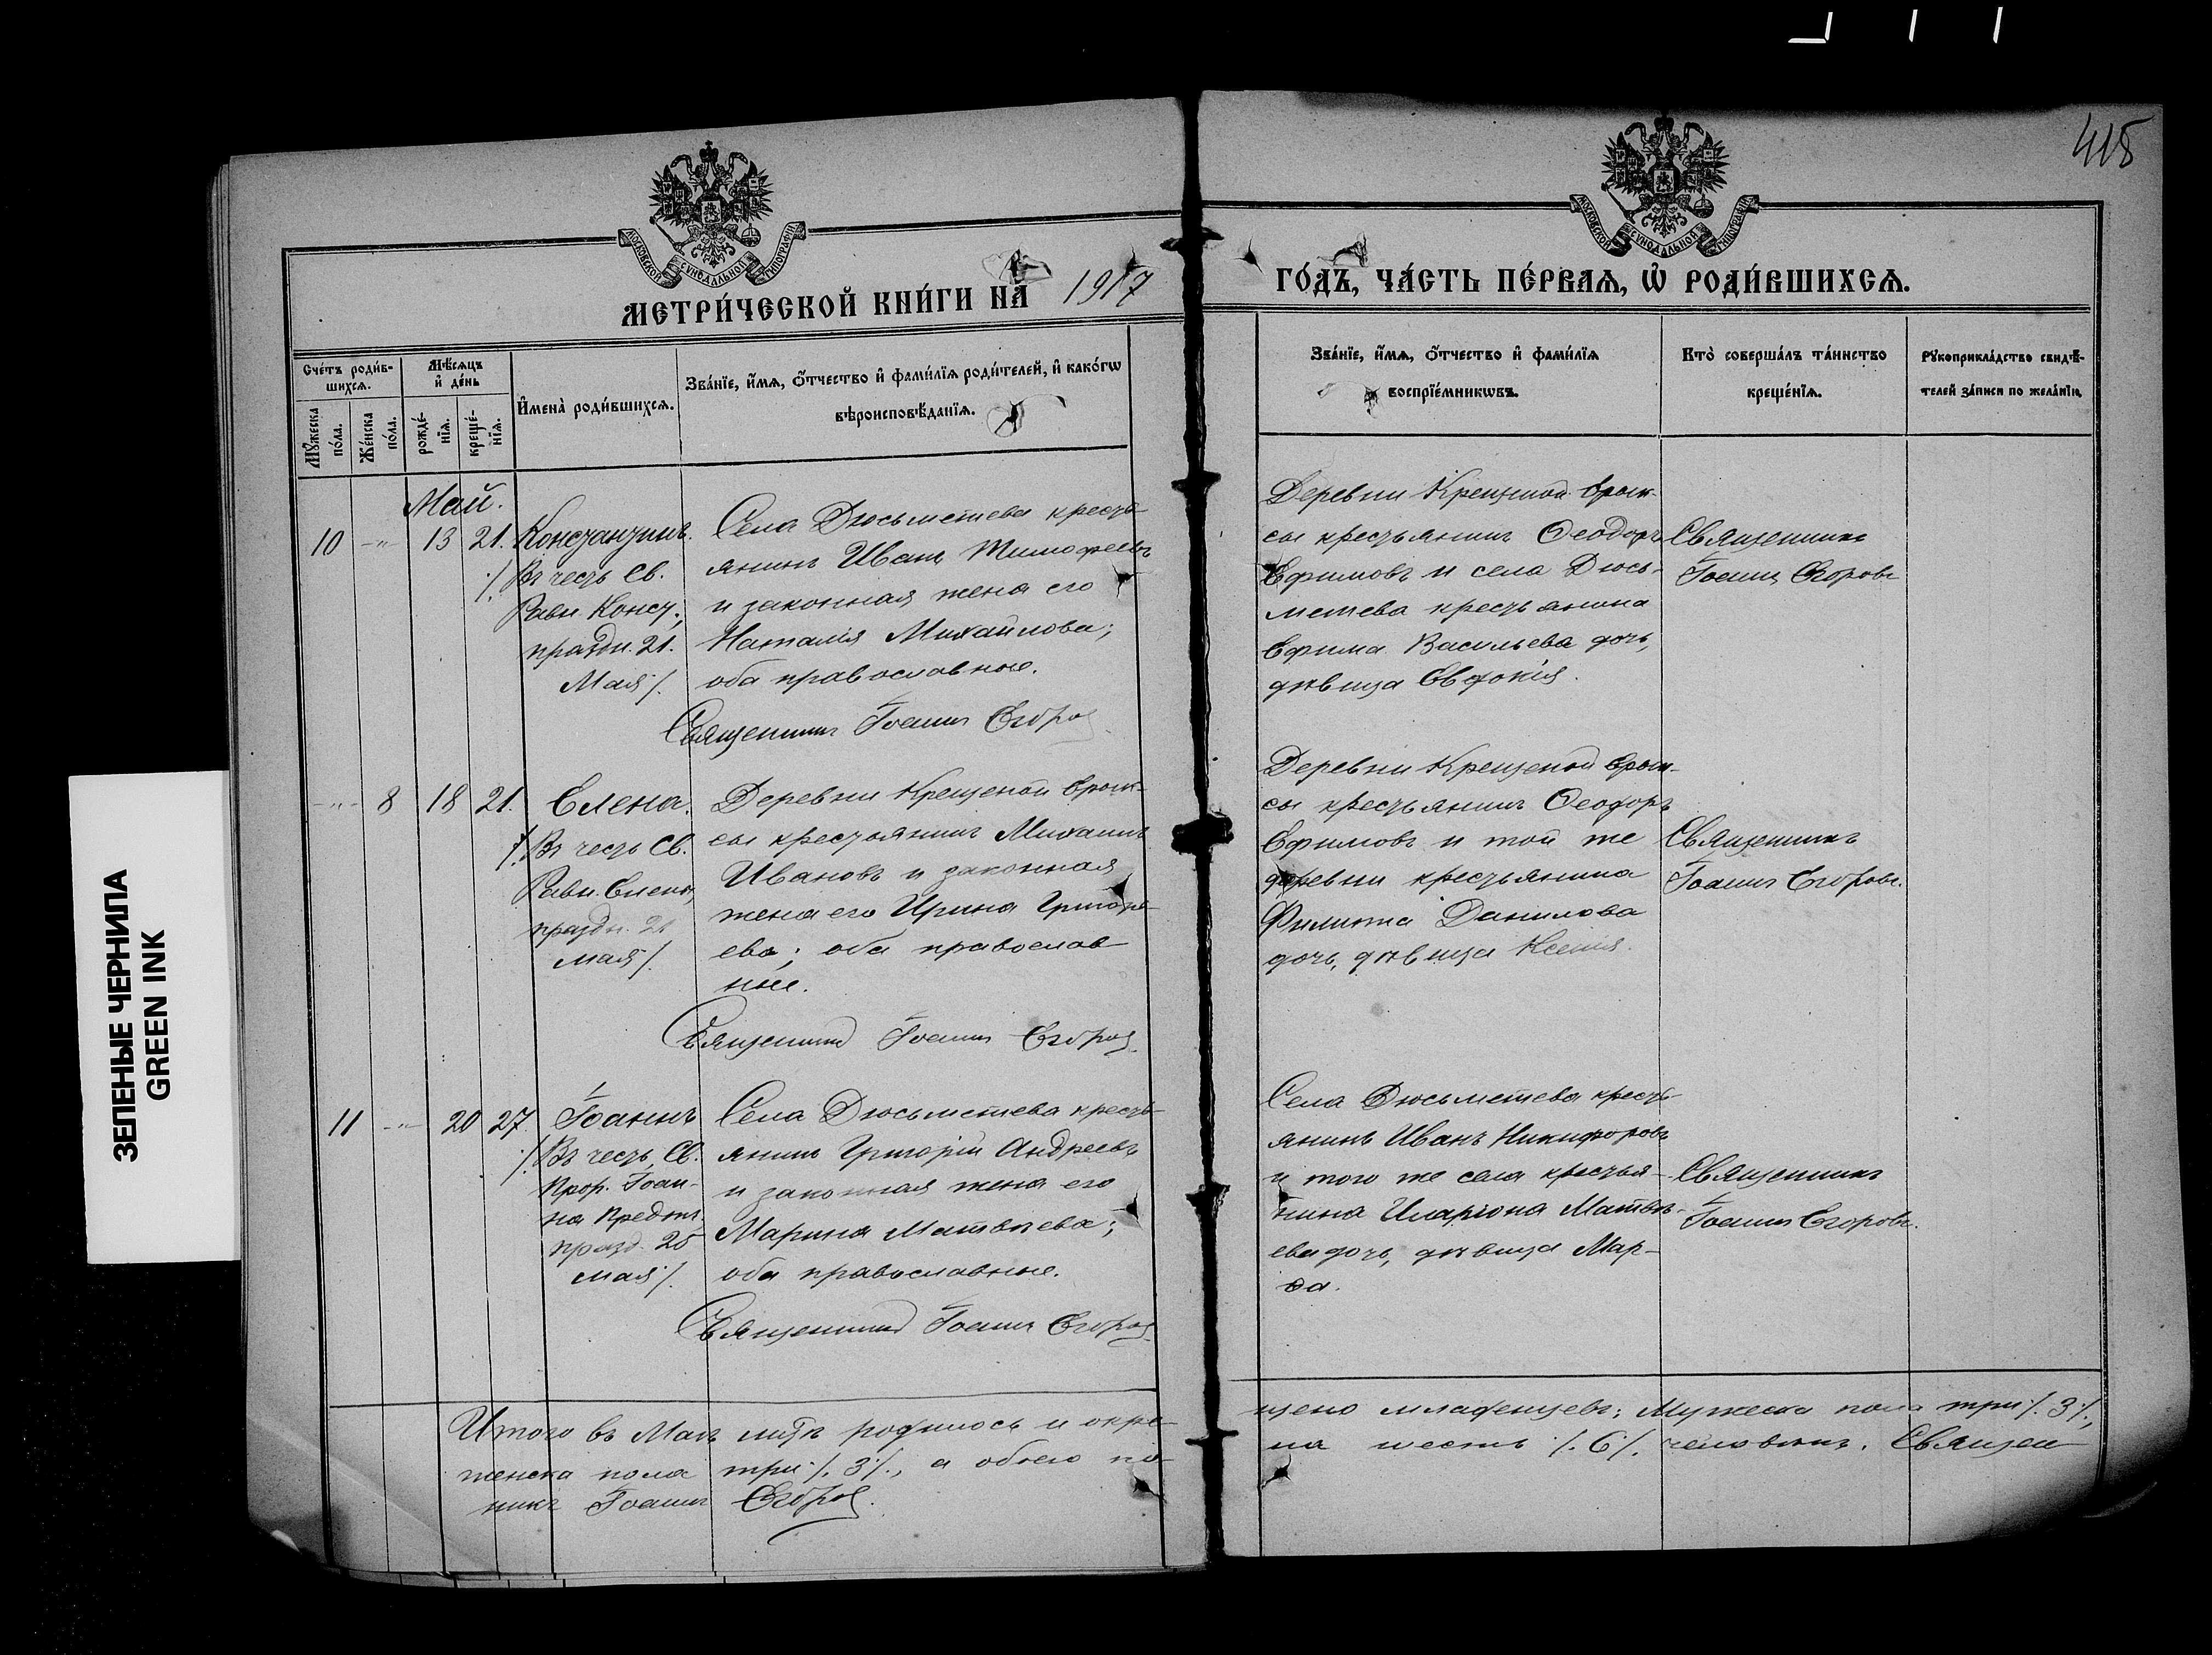 415
МОСКОВСКОЙ СѴНОДАЛЬНОЙ ТИПОГРАФІИ
МОСКОВСКОЙ СѴНОДАЛЬНОЙ ТИПОГРАФІИ
МЕТРИ́ЧЕСКОЙ КНИ́ГИ НА̀ 1917
ГО́ДЪ, ЧА́СТЬ ПЕ́РВАЯ, Ѡ҆ РОДИ́ВШИХСЯ.
Сче́тъ роди́в-
шихся.
Мѣ́сяцъ
и҆ де́нь
Мꙋ́жеска
по́ла.
Же́нска
по́ла.
рожде́-
нїя.
креще́-
нїя.
И҆мена̀ роди́вшихся.
Зва́нїе, и҆́мя, ѻ҆́тчество и҆ фами́лїя роди́телей, и҆ како́гѡ
вѣроисповѣ́данїя.
Зва́нїе, и҆́мя, ѻ҆́тчество и҆ фами́лїя
воспрїе́мникѡвъ.
Кто̀ соверша́лъ та́инство
креще́нїя.
Рꙋкоприкла́дство свидѣ́-
телей за́писи по жела́нїю.
Май.
10 -„- 13 21.
Константинъ.
/. Въ честь Св.
Равн. Конст.,
праздн. 21.
Мая /.
Села Дюсьметева кресть-
янинъ Иванъ Тимофеевъ
и законная жена его
Наталія Михаилова;
оба православные.
Священникъ Іоаннъ Егоров
Деревни Крещеной
сы крестьянинъ Ѳеодоръ
Ефимовъ и села Дюсь-
метева крестьянина
Ефима Васильева дочь,
дѣвица Евдокія.
Священникъ
Іоаннъ Егоровъ
-„- 8 18 21.
Елена.
/. Въ честь Св.
Равн. Елены,
праздн. 21
мая /.
Деревни Крещеной
сы крестьянинъ Михаилъ
Ивановъ и законная
жена его Ирина Григорь-
ева; оба православ-
ные.
Священникъ Іоаннъ Егоров
Деревни Крещеной
сы крестьянинъ Ѳеодоръ
Ефимовъ и той же
деревни крестьянина
Филиппа Данилова
дочь, дѣвица Ксенія.
Священникъ
Іоаннъ Егоровъ.
11 -„- 20 27
Іоаннъ
/. Въ честь Св.
Прор. Іоан-
на Предт.,
празд. 25
мая /.
Села Дюсьметева кресть-
янинъ Григорій Андреевъ
и законная жена его
Марина Матвѣева;
оба православные.
Священникъ Іоаннъ Егоров
Села Дюсьметева кресть-
янинъ Иванъ Никифоровъ
и того же села крестья-
нина Иларіона Матвѣ-
ева дочь, дѣвица Мар-
ѳа.
Священникъ
Іоаннъ Егоровъ.
Итого въ Маѣ м-цѣ родилось и окре-
щено младенцевъ: Мужеска пола три /. 3 /.,
женска пола три /. 3 /., а обоего по-
ла шесть /. 6 /. человѣкъ. Священ-
никъ Іоаннъ Егоров.
ЗЕЛЕНЫЕ ЧЕРНИЛА
GREEN INK